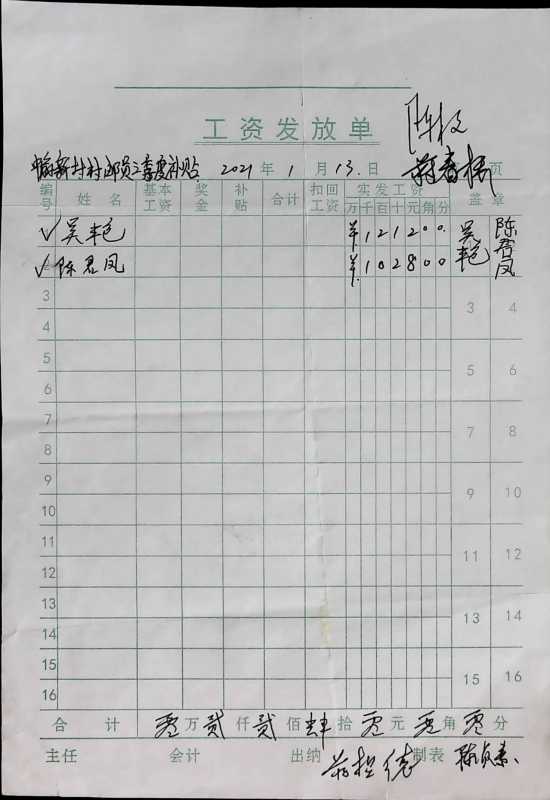 工资发放单
村邮员三季度补贴 2021年1月13日 页
编号 姓名 基本工资 奖金 补贴 合计 扣回工资 实发工资 盖章
万 千 百 十 元 角 分
✓ 吴丰色 ¥ 1 2 1 2 0 0 吴丰色 陈君凤
✓ 陈君凤 ¥ 1 0 2 8 0 0
3
4 3 4
5
6 5 6
7
8 7 8
9
10 9 10
11
12 11 12
13
14 13 14
15
16 15 16
合计 零万贰仟贰佰肆拾零元零角零分
主任 会计 出纳 制表